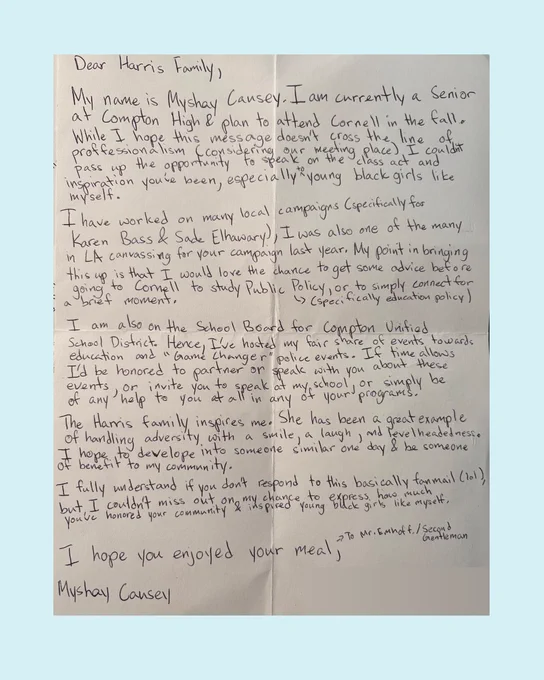 Dear Harris Family,
My name is Myshay Causey. I am currently a Senior
at Compton High & plan to attend Cornell in the fall.
While I hope this message doesn't cross the line of
proffessionalism (considering our meeting place), I couldn't
pass up the opportunity to speak on the class act and
inspiration you've been, especially to young black girls like
myself.
I have worked on many local campaigns (specifically for
Karen Bass & Sade Elhawary), I was also one of the many
in LA canvassing for your campaign last year. My point in bringing
this up is that I would love the chance to get some advice before
going to Cornell to study Public Policy, or to simply connect for
a brief moment. ↳ (specifically education policy)
I am also on the School Board for Compton Unified
School District. Hence, I've hosted my fair share of events towards
education and "Game Changer" police events. If time allows
I'd be honored to partner or speak with you about these
events, or invite you to speak at my school, or simply be
of any help to you at all in any of your programs.
The Harris family inspires me. She has been a great example
of handling adversity with a smile, a laugh, and levelheadedness.
I hope to develop into someone similar one day & be someone
of benefit to my community.
I fully understand if you don't respond to this basically fanmail (lol),
but, I couldn't miss out on my chance to express how much
you've honored your community & inspired young black girls like myself.
→ To Mr. Emhoff./Second
Gentleman
I hope you enjoyed your meal,
Myshay Causey